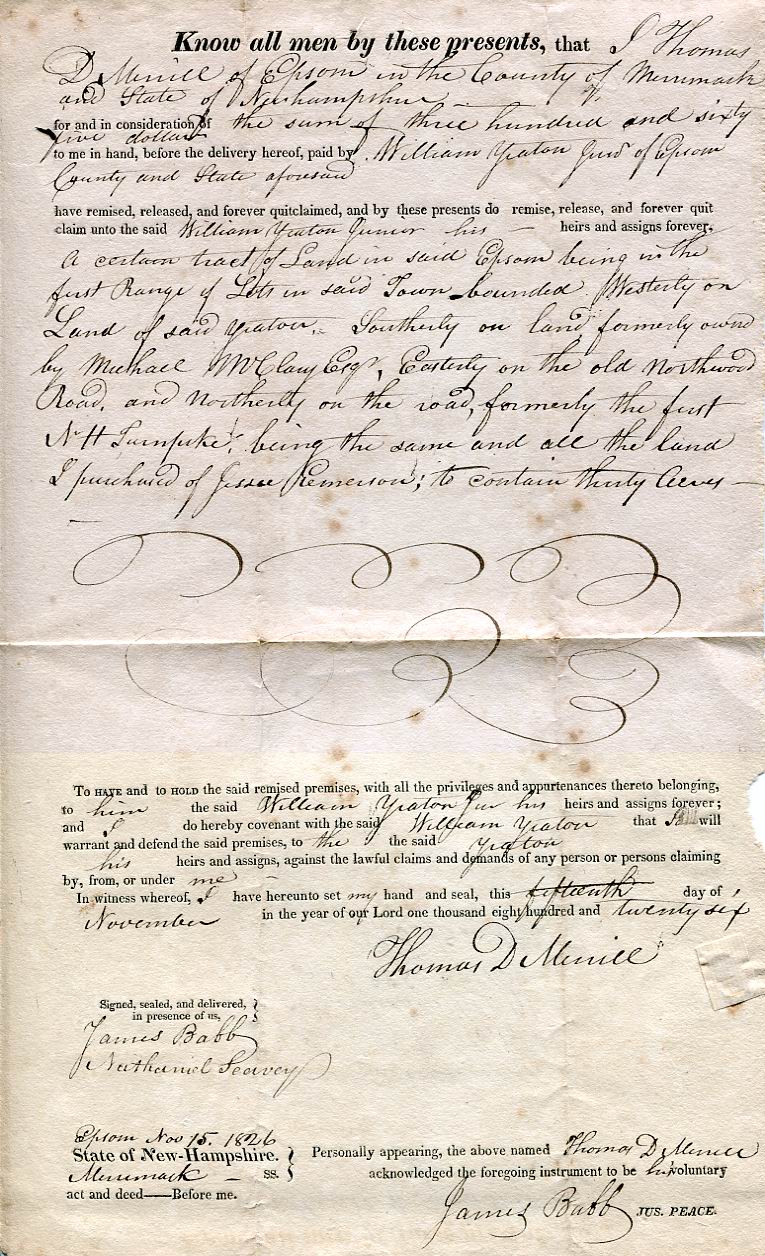 Know all men by these presents, that I Thomas
D Merrill of Epsom in the County of Merrimack
and State of Newhampshire
for and in consideration of the sum of three hundred and sixty
five dollars
to me in hand, before the delivery hereof, paid by William Yeaton Junr of Epsom
County and State aforesaid
have remised, released, and forever quitclaimed, and by these presents do remise, release, and forever quit
claim unto the said William Yeaton Junior his — heirs and assigns forever,
A certain tract of Land in said Epsom being in the
first Range of Lots in said Town bounded Westerly on
Land of said Yeaton, Southerly on land formerly owned
by Michael McClary Esqr, Easterly on the old Northwood
Road, and Northerly on the road, formerly the first
N H Turnpike, being the same and all the land
I purchased of Jessee Remerson; to contain thirty Acres —
To HAVE and to HOLD the said remised premises, with all the privileges and appurtenances thereto belonging,
to him the said William Yeaton Jur his heirs and assigns forever;
and I do hereby covenant with the said William Yeaton that I will
warrant and defend the said premises, to the the said Yeaton
his heirs and assigns, against the lawful claims and demands of any person or persons claiming
by, from, or under me
In witness whereof, I have hereunto set my hand and seal, this fifteenth day of
November in the year of our Lord one thousand eight hundred and twenty six
Thomas D Merrill
Signed, sealed, and delivered, }
in presence of us,
James Babb
Nathaniel Seavey
Epsom Nov 15. 1826
State of New-Hampshire. } Personally appearing, the above named Thomas D Merrill
Merrimack — ss. acknowledged the foregoing instrument to be his voluntary
act and deed—Before me.
James Babb JUS. PEACE.